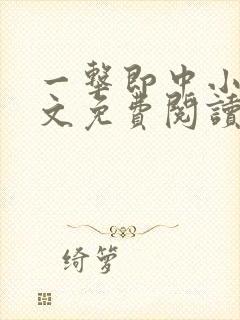 一击即中小
文免費閱讀
绮萝